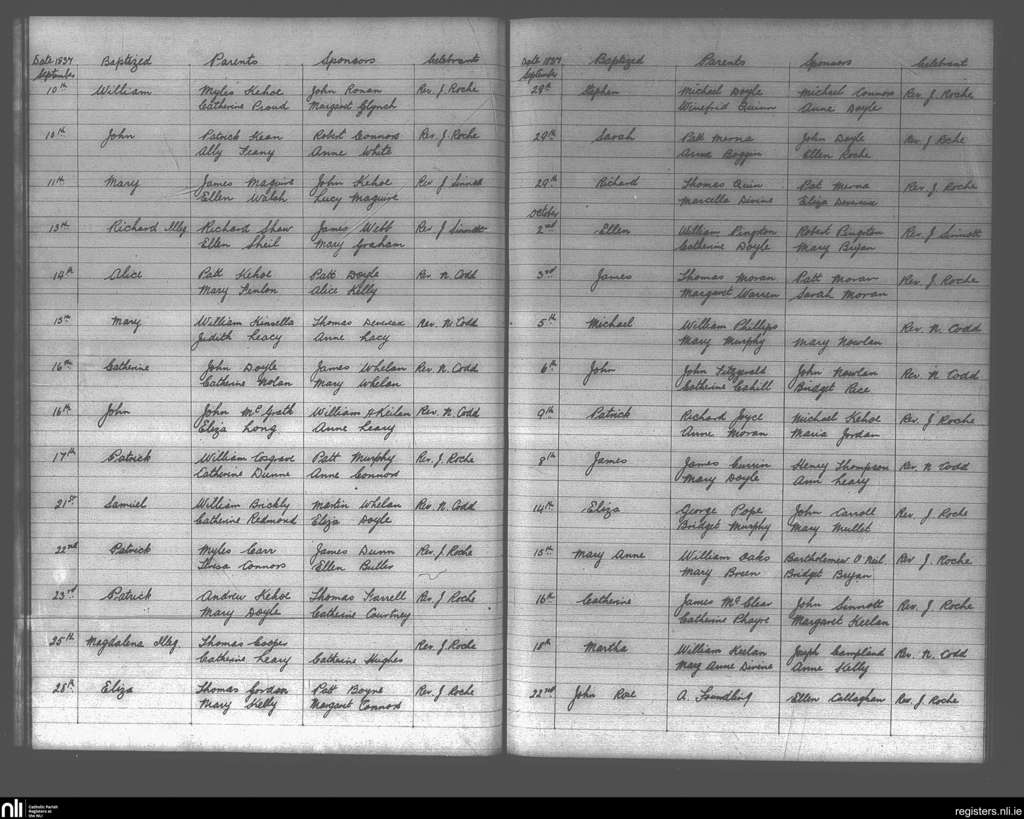 Date 1837 Baptized Parents Sponsors Celebrant
September
10th William Myles Kehoe John Ronan Rev. J. Roche
Catherine Proud Margaret Glynch
10th John Patrick Kean Robert Connors Rev. J. Roche
Ally Feany Anne White
11th Mary James Maguire John Kehoe Rev J Sinnott
Ellen Walsh Lucy Maguire
13th Richard Illeg Richard Shaw James Webb Rev J Sinnott
Ellen Sheil Mary Graham
14th Alice Patt Kehoe Patt Doyle Rev. N. Codd
Mary Fenlon Alice Kelly
15th Mary William Kinsella Thomas Devereux Rev. N. Codd
Judith Leacy Anne Lacy
16th Catherine John Doyle James Whelan Rev. N. Codd
Catherine Nolan Mary Whelan
16th John John McGrath William Rev. N. Codd
Eliza Long Anne Leary
17th Patrick William Cosgrave Patt Murphy Rev. J. Roche
Catherine Dunne Anne Connors
21st Samuel William Brickly Martin Whelan Rev. N. Codd
Catherine Redmond Eliza Doyle
22nd Patrick Myles Carr James Dunn Rev. J. Roche
Teresa Connors Ellen Butler
23rd Patrick Andrew Kehoe Thomas Farrell Rev. J. Roche
Mary Doyle Catherine Courtney
25th Magdalena Illeg. Thomas Cooper Rev. J. Roche
Catherine Leary Catherine Hughes
28th Eliza Thomas Jordan Patt Boyne Rev. J. Roche
Mary Kelly Margaret Connors
Date 1837 Baptized Parents Sponsors Celebrant
September
29th Stephen Michael Doyle Michael Connors Rev. J. Roche
Winefrid Quinn Anne Doyle
29th Sarah Patt Merna John Doyle Rev. J Roche
Anne Boggin Ellen Roche
29th Richard Thomas Quin Pat Merna Rev. J. Roche
Marcella Divine Eliza Devereux
October
2nd Ellen William Pingston Robert Pingston Rev. J. Sinnott
Catherine Doyle Mary Bryan
3rd James Thomas Moran Patt Moran Rev. J. Roche
Margaret Warren Sarah Moran
5th Michael William Phillips Rev. N. Codd
Mary Murphy Mary Nowlan
6th John John Fitzgerald John Nowlan Rev. N Codd
Catherine Cahill Bridget Rice
9th Patrick Richard Joyce Michael Kehoe Rev. J. Roche
Anne Moran Maria Jordan
8th James James Currin Henry Thompson Rev. N Codd
Mary Doyle Ann Leary
14th Eliza George Pope John Carroll Rev. J. Roche
Bridget Murphy Mary Mullet
15th Mary Anne William Oaks Bartholemew O'Neil Rev J. Roche
Mary Breen Bridget Bryan
16th Catherine James McClear John Sinnott Rev. J. Roche
Catherine Phayre Margaret Keelan
18th Martha William Keelan Joseph Rev. N. Codd
Mary Anne Divine Anne Kelly
22nd John Roe A. Foundling Ellen Callaghan Rev. J. Roche
nli
Catholic Parish
Registers at
the NLI
registers.nli.ie